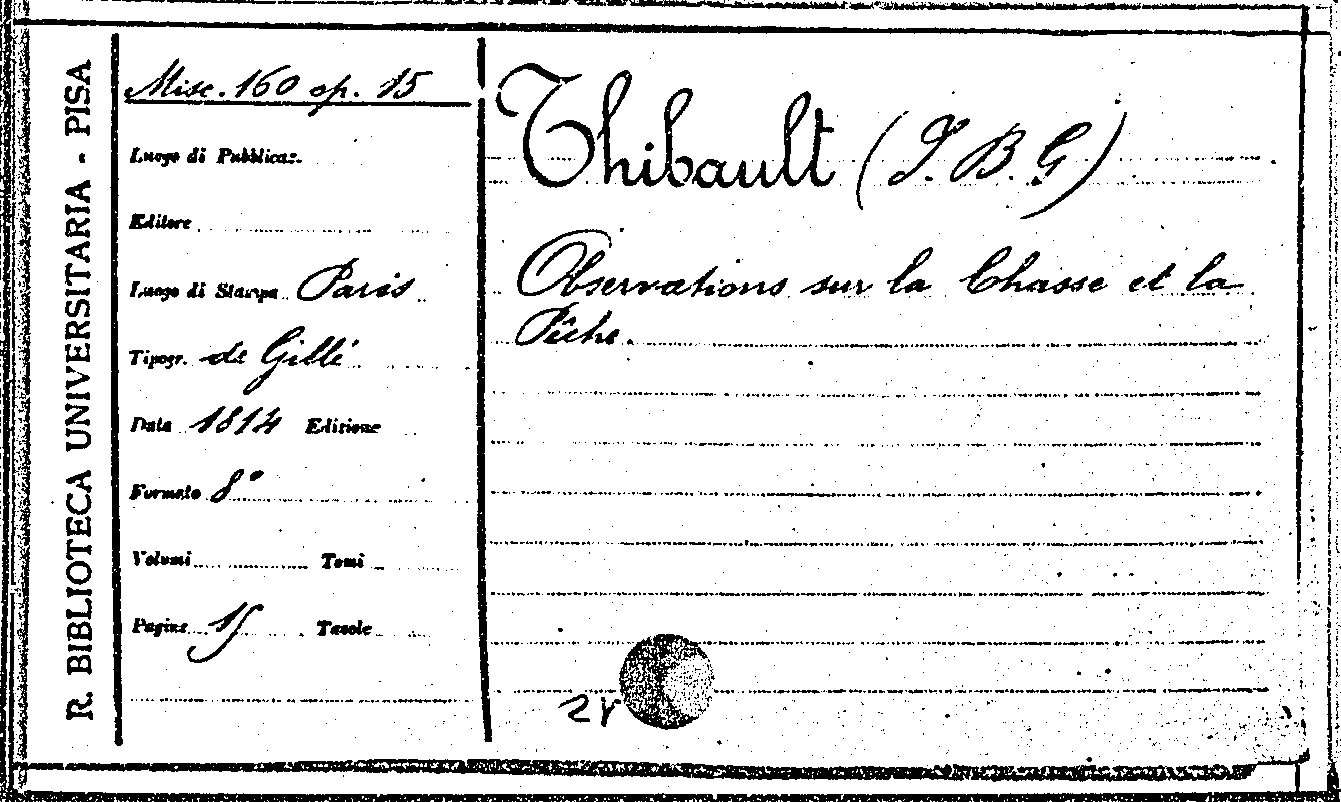 R. BIBLIOTECA UNIVERSITARIA - PISA
Misc. 160 op. 15
Luogo di Pubblicaz.
Editore
Luogo di Stampa Paris
Tipogr. de Gillé
Data 1814 Edizione
Formato 8°
Volumi Tomi
Pagine 15 Tavole
Thibault (J. B. G)
Observations sur la Chasse et la
Pêche.